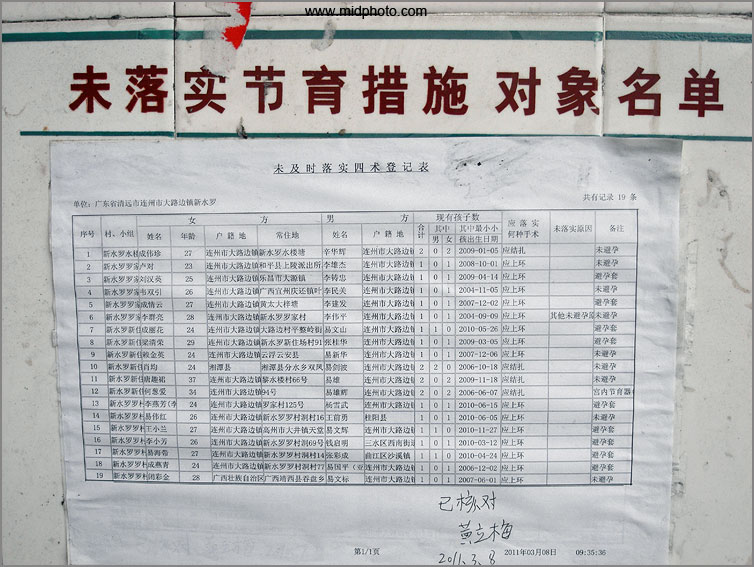 www.midphoto.com
未落实节育措施 对象名单
未及时落实四术登记表
单位: 广东省清远市连州市大路边镇新水罗 共有记录 19 条
序号 村、小组 女方 男方 现有孩子数 应落实何种手术 未落实原因 备注
姓名 年龄 户籍地 常住地 姓名 户籍地 合计 其中 其中最小小孩出生日期
男 女
1 新水罗水楼 成伟珍 27 连州市大路边镇 新水罗水楼塘 辛华辉 连州市大路边镇 2 0 2 2009-01-05 应结扎 未避孕
2 新水罗 卢对 23 连州市大路边镇 和平县上陵派出所 李雄杰 连州市大路边镇 1 0 1 2008-10-01 应上环 未避孕
3 新水罗 刘汉英 25 连州市大路边镇 乐昌市大源镇 李铸忠 连州市大路边镇 1 0 1 2009-04-14 应上环 避孕套
4 新水罗 韦双引 26 连州市大路边镇 广西宜州庆还镇叶 李民关 连州市大路边镇 1 0 1 2004-11-05 应上环 未避孕
5 新水罗 成情云 27 连州市大路边镇 黄太大梓塘 李建发 连州市大路边镇 1 0 1 2007-12-02 应上环 避孕套
6 新水罗 李群亮 28 连州市大路边镇 新水罗罗家村 李伟平 连州市大路边镇 1 0 1 2004-09-09 应上环 其他未避孕原 未避孕
7 新水罗新住 成丽花 24 连州市大路边镇 大路边村平整岭街 易文山 连州市大路边镇 1 1 0 2010-05-26 应上环 避孕套
8 新水罗新住 梁清荣 29 连州市大路边镇 新水罗新住场村91 张桂华 连州市大路边镇 1 0 1 2009-03-05 应上环 避孕套
9 新水罗新住 赖金英 24 连州市大路边镇 云浮云安县 易新华 连州市大路边镇 1 0 1 2007-12-06 应上环 未避孕
10 新水罗新住 肖均 24 湘潭县 湘潭县分水乡双凤 易剑波 连州市大路边镇 2 2 0 2006-10-18 应结扎 未避孕
11 新水罗新住 唐趣昭 37 连州市大路边镇 黎水楼村66号 易雄 连州市大路边镇 2 0 2 2009-11-18 应结扎 未避孕
12 新水罗新住 何惠爱 34 连州市大路边镇 94号 易雄辉 连州市大路边镇 2 0 2 2006-06-07 应结扎 宫内节育器
13 新水罗罗村 李燕芳(李 24 连州市大路边镇 罗家村125号 杨雪武 连州市大路边镇 1 0 1 2010-06-15 应上环 避孕套
14 新水罗罗村 易伟红 26 连州市大路边镇 新水罗罗村洞村16 王前勇 湘阳县 1 0 1 2010-06-05 应上环 未避孕
15 新水罗罗村 王小兰 27 连州市大路边镇 高州市大井镇天堂 易文辉 连州市大路边镇 1 1 0 2010-11-27 应上环 避孕套
16 新水罗罗村 李小芳 26 连州市大路边镇 新水罗罗村洞69号 钱启明 三水区西南街道 1 0 1 2010-03-12 应上环 避孕套
17 新水罗罗村 易海带 27 连州市大路边镇 新水罗罗村洞村 张彩成 曲江区沙溪镇 1 1 0 2010-04-24 应上环 避孕套
18 新水罗罗村 成燕青 24 连州市大路边镇 新水罗罗村洞村77 易国平(亚 连州市大路边镇 1 0 1 2006-12-02 应上环 避孕套
19 新水罗罗村 闭彩金 28 广西壮族自治区 广西靖西县吞盘乡 易文标 连州市大路边镇 1 0 1 2007-06-01 应上环 未避孕
已核对
黄立梅
2011.3.8
第1/1页 2011年03月08日 09:35:36